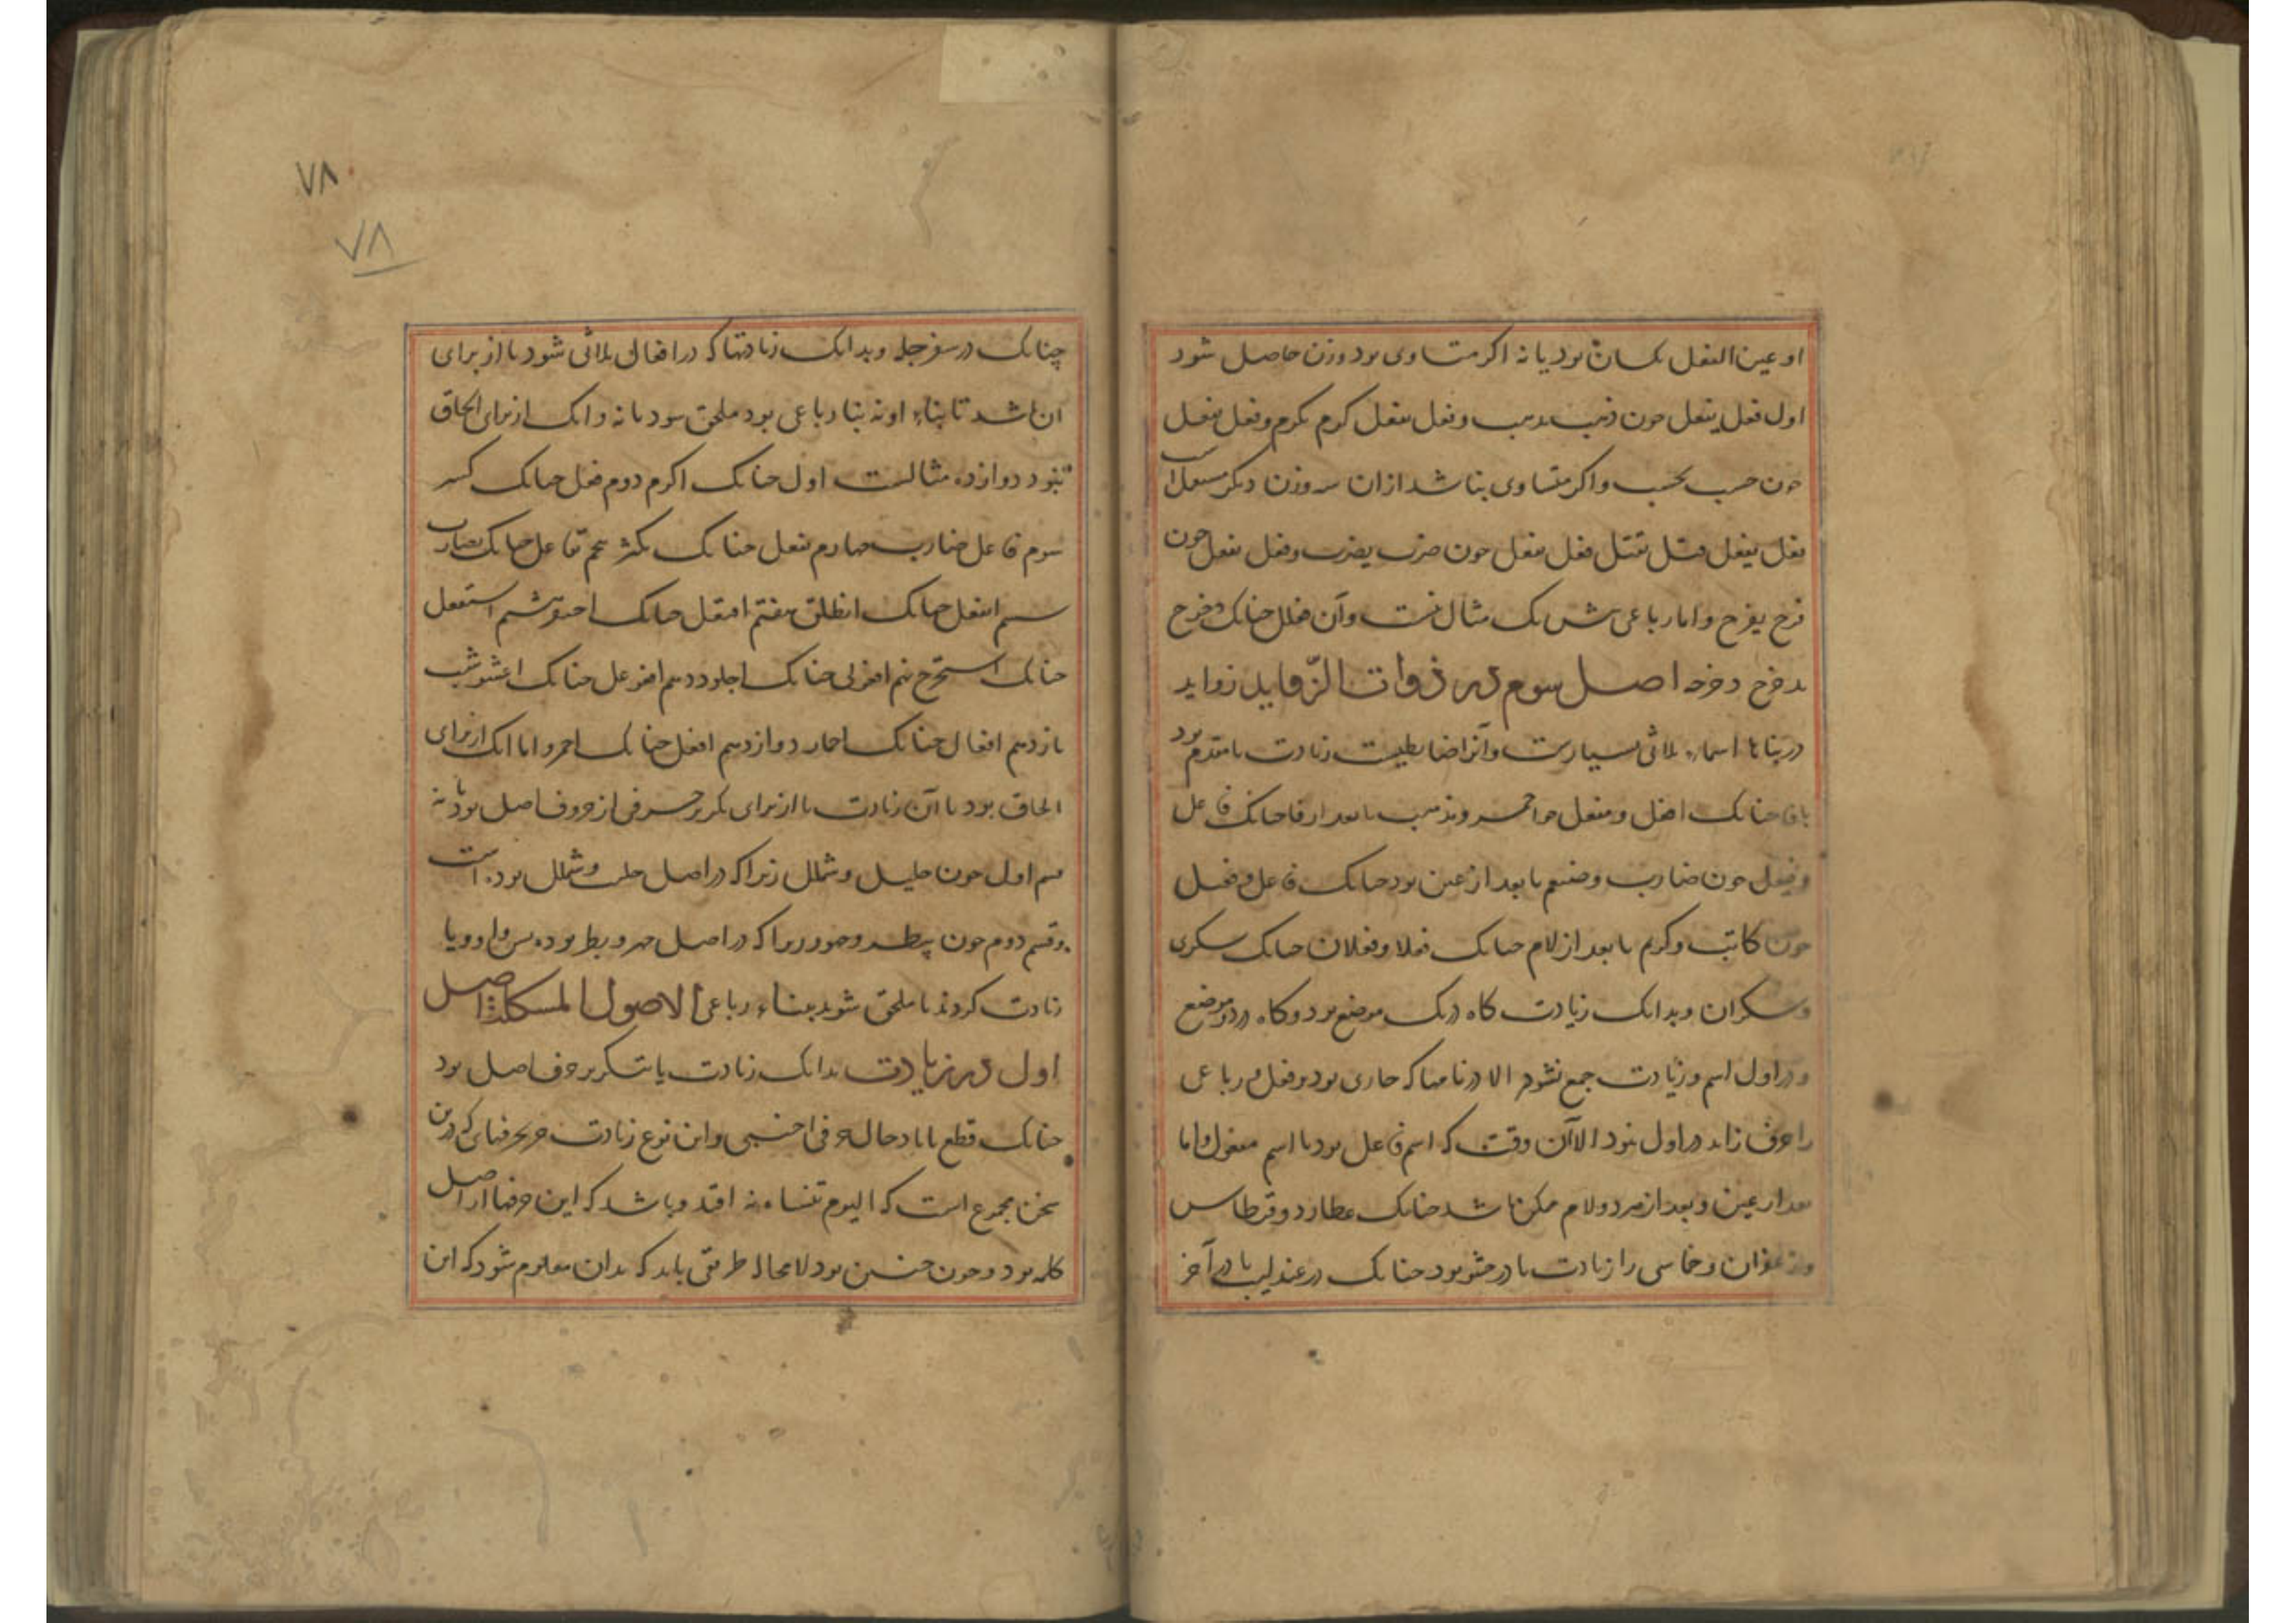 او عین الفعل یکسان بود یا نه اکر متساوی بود وزن حاصل شود
اول فعل یفعل جون ذهب یذهب وفعل یفعل کرم یکرم وفعل یفعل
جون حسب یحسب واکر متساوی نباشد ازان سه وزن دیکر مستعمل است
فعل یفعل قتل یقتل فعل یفعل جون ضرب یضرب وفعل یفعل جون
فرح یفرح واما رباعی بیش یک مثال نیست وآن فعلل جنانک دحرج
یدحرج دحرجه اصل سوم در ذوات الزواید زواید
در بناها اسماء ثلاثی بسیارست وآنرا ضابطیست زیادت یا مقدم بود
بافا جنانک افعل ومفعل جو احمر ومذهب یا بعد از فا جنانک فاعل
وفیعل جون ضارب وضیغم یا بعد از عین بود جنانک فاعل وفعیل
جون کاتب وکریم یا بعد از لام جنانک فعلا وفعلان جنانک سکری
وسکران وبدانک زیادت کاه در یک موضع بود وکاه در دو موضع
ودر اول اسم دو زیادت جمع نشود الا در نامها که جاری بود بر فعل ورباعی
را حرف زاید در اول نبود الا آن وقت که اسم فاعل بود یا اسم مفعول واما
بعد از عین وبعد از هر دو لام ممکن باشد جنانک عطارد وقرطاس
وزعفران وخماسی را زیادت یا در حشو بود جنانک در عندلیب یا در آخر
٧٨
٧٨
چنانک در سفرجله وبدانک زیادتها که در افعال ثلاثی شود یا از برای
آن باشد تا بناء او نه بنا رباعی بود ملحق شود یا نه وانک از برای الحاق
نبود دوازده مثالست اول جنانک اکرم دوم فعل جنانک کسر
سوم فاعل ضارب جهارم تفعل جنانک تکثر پنجم تفاعل جنانک تضارب
ششم انفعل جنانک انطلق هفتم افتعل جنانک هشتم استفعل
جنانک استخرج نهم افعول جنانک اجلوذ دهم افعوعل جنانک اعشوشب
یازدهم افعال جنانک احمار دوازدهم افعل جنانک احمر واما انک از برای
الحاق بود یا آن زیادت یا از برای تکریر حرفی از حروف اصل بود یا نه
قسم اول جون جلبب وشملل زیرا که در اصل جلب وشمل بوده است
وقسم دوم جون بیطر وجهور زیرا که در اصل جهر وبطر بوده پس واو ویا
زیادت کردند تا ملحق شوند ببناء رباعی الاصول المشکلة اصل
اول در زیادت بدانک زیادت یا بتکریر حرف اصل بود
جنانک قطع یا بادخال حرفی اجنبی واین نوع زیادت جز بحرفهای که درین
سخن مجموع است که الیوم تنساه نه افتد وباشد که این حرفها از اصل
کلمه بود وجون جنین بود لامحاله طریقی باید که بدان معلوم شود که این